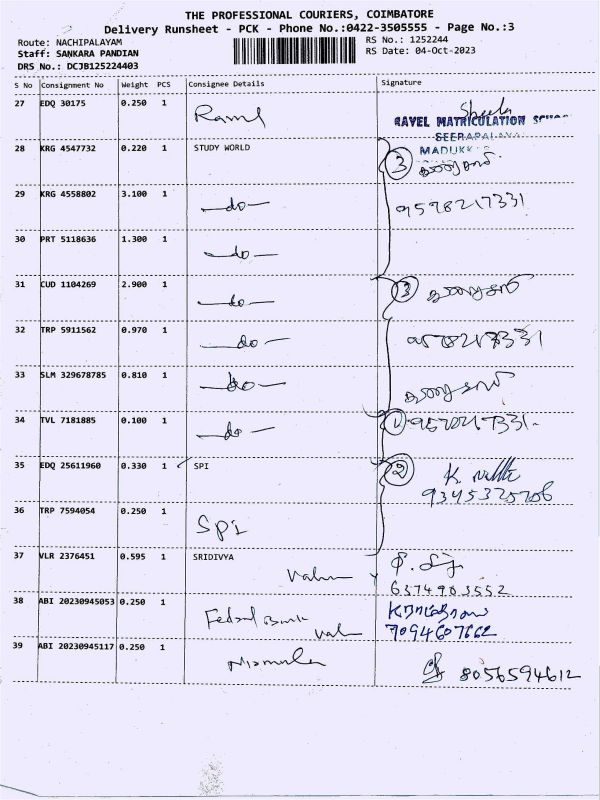 THE PROFESSIONAL COURIERS, COIMBATORE
Delivery Runsheet - PCK - Phone No.:0422-3505555 - Page No.:3
Route: NACHIPALAYAM
RS No.: 1252244
Staff: SANKARA PANDIAN
RS Date: 04-Oct-2023
DRS No.: DCJB125224403
S No Consignment No Weight PCS Consignee Details Signature
27 EDQ 30175 0.250 1
RAVEL MATRICULATION
MADUKK
28 KRG 4547732 0.220 1 STUDY WORLD
3
29 KRG 4558802 3.100 1 —do— 9578217331
30 PRT 5118636 1.300 1 —do—
31 CUD 1104269 2.900 1 —do— 3
32 TRP 5911562 0.970 1 —do—
33 SLM 329678785 0.810 1 —do—
34 TVL 7181885 0.100 1 —do— 1
35 EDQ 25611960 0.330 1 SPI 2
36 TRP 7594054 0.250 1 Spi
37 VLR 2376451 0.595 1 SRIDIVYA
6374903552
38 ABI 20230945053 0.250 1 Federal Bank
7094607662
39 ABI 20230945117 0.250 1 8056594612